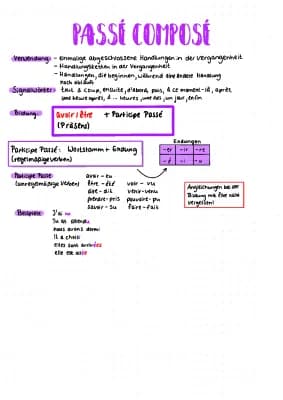 PASSÉ COMPOSÉ
Verwendung - Einmalige abgeschlossene Handlungen in der Vergangenheit
- Handlungsketten in der Vergangenheit
- Handlungen, die beginnen, während eine andere Handlung
noch abläuft
Signalwörter: tout à coup, ensuite, d'abord, puis, à ce moment-là, après
une heure après, à ... heures, un jour, enfin
Bildung: avoir / être + Participe Passé
(Präsens)
Endungen
Participe Passé: Wortstamm + Endung
(regelmäßige Verben)
-er -ir -re
-é -i -u
Participe Passé
(unregelmäßige Verben)
avoir - eu
être - été
dire - dit
prendre - pris
savoir - su
voir - vu
venir - venu
pouvoir - pu
faire - fait
Angleichungen bei der
Bildung mit être nicht
vergessen!
Beispiele: J'ai
Tu as
nous avons dormi
Il a choisi
elles sont arrivées
elle est